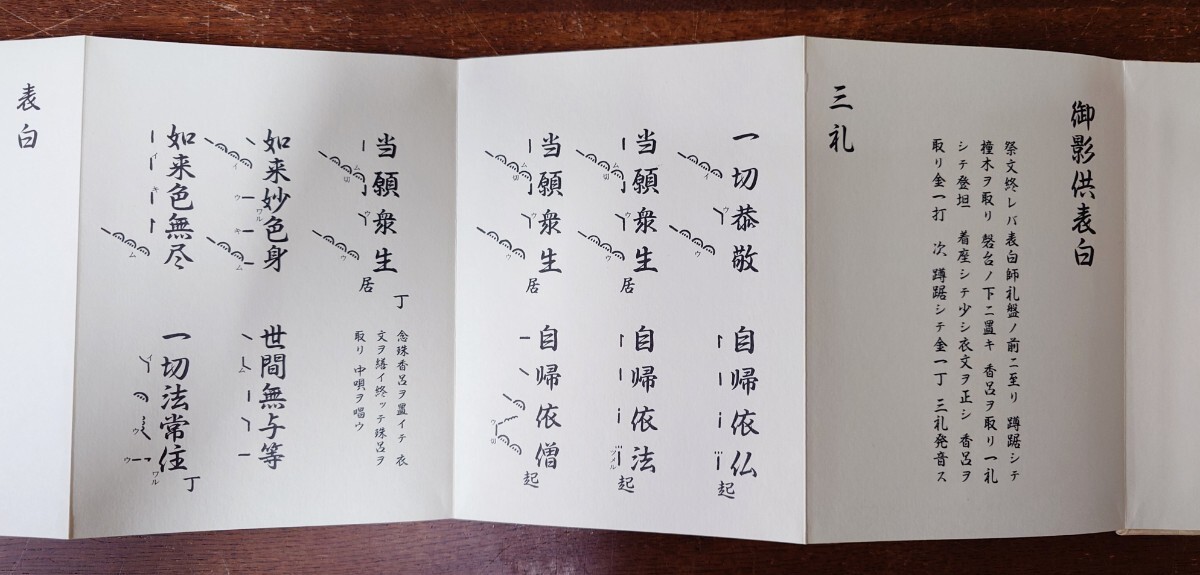 御影供表白
祭文終レバ表白師礼盤ノ前ニ至リ 蹲踞シテ
撞木ヲ取リ 磬台ノ下ニ置キ 香呂ヲ取リ一礼
シテ登坦 着座シテ少シ衣文ヲ正シ 香呂ヲ
取リ金一打 次 蹲踞シテ金一丁 三礼発音ス
三礼
一切恭敬 自帰依仏 起
当願衆生 居 自帰依法 起
当願衆生 居 自帰依僧 起
当願衆生 居 丁
念珠香呂ヲ置イテ 衣
文ヲ繕イ終ッテ珠呂ヲ
取リ 中唄ヲ唱ウ
如来妙色身 世間無与等
如来色無尽 一切法常住 丁
表白